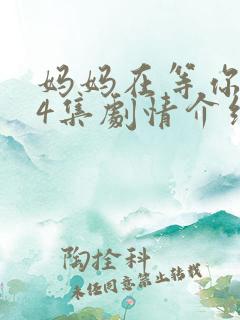 妈妈在等你
4集劇情介绍
陶拴科
未经同意禁止转载